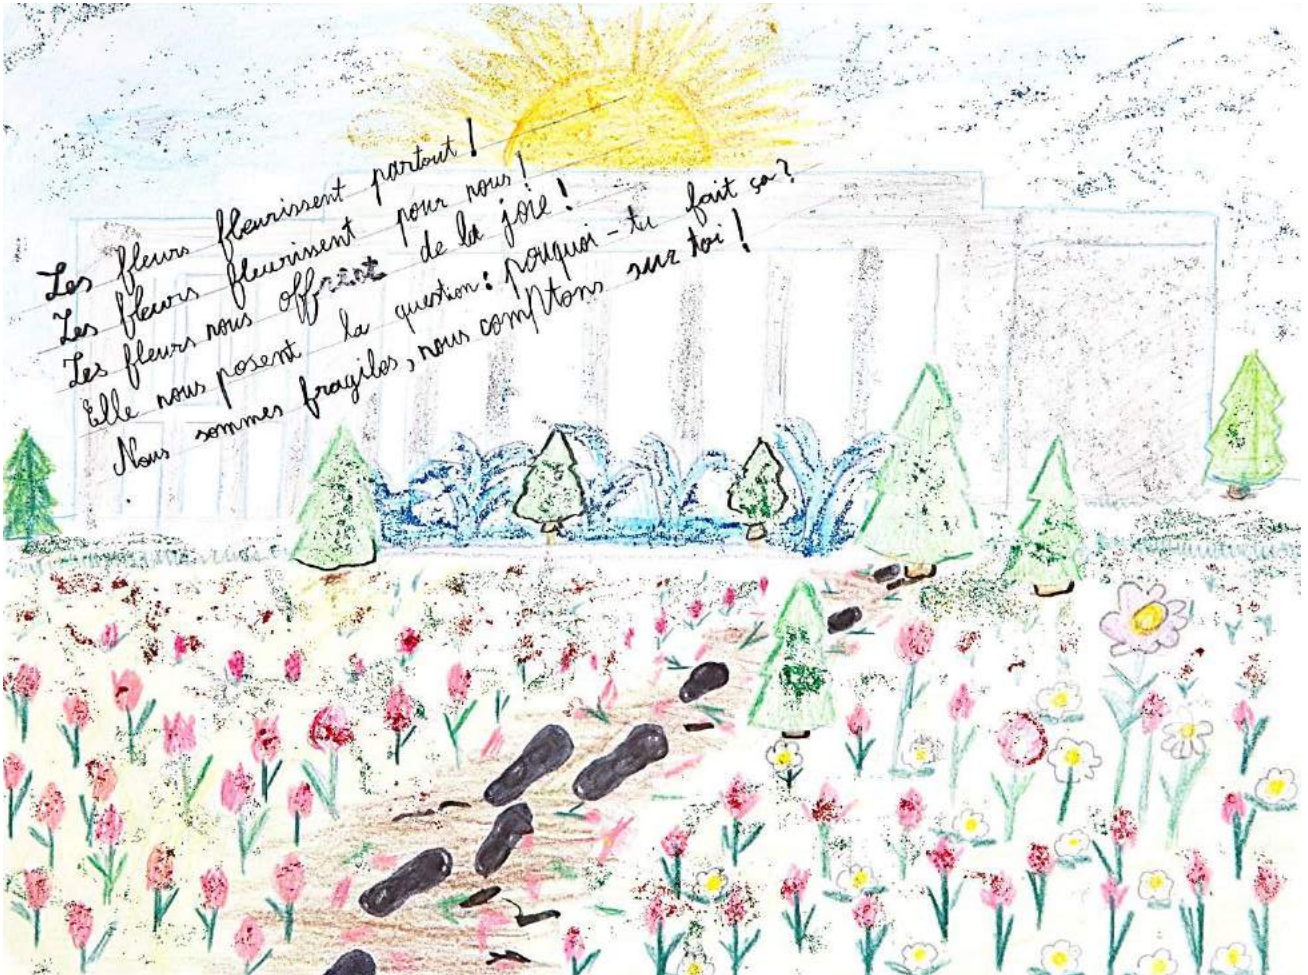 Les fleurs fleurissent partout !
Les fleurs fleurissent pour nous !
Les fleurs nous offrent de la joie !
Elle nous posent la question : pouquoi - tu fait ça ?
Nous sommes fragiles, nous comptons sur toi !